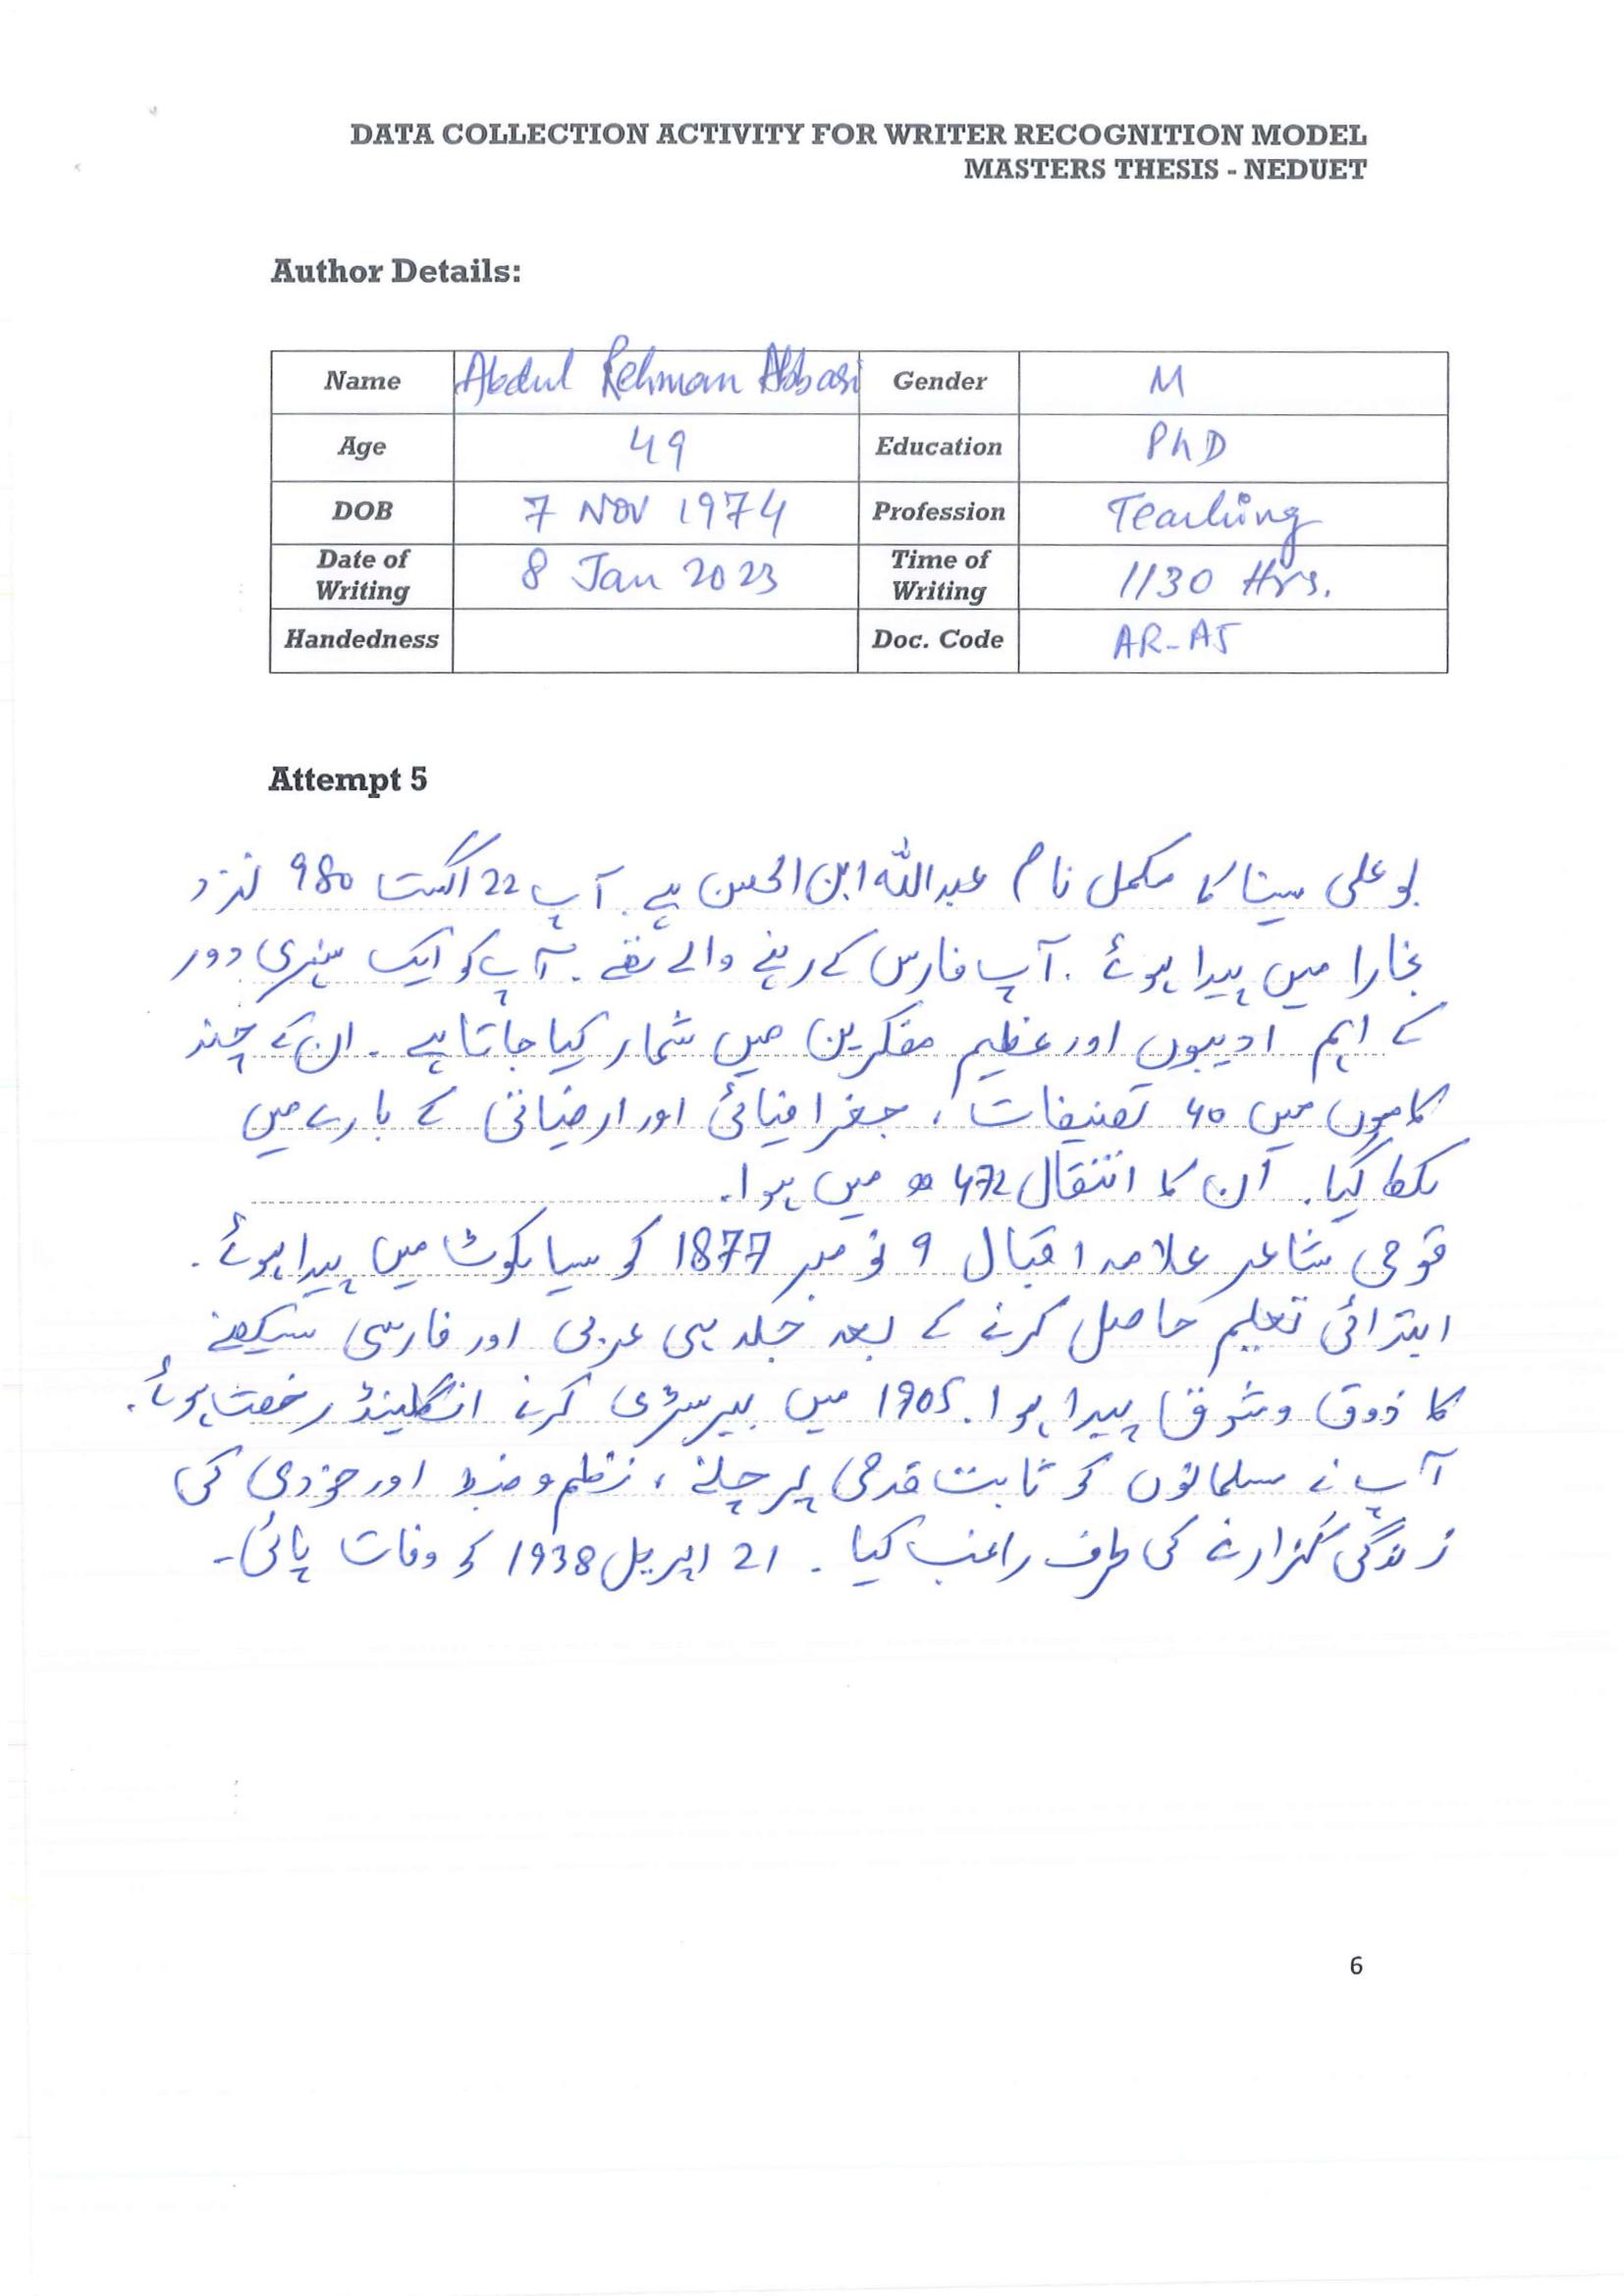 DATA COLLECTION ACTIVITY FOR WRITER RECOGNITION MODEL
MASTERS THESIS - NEDUET
Author Details:
Name Abdul Rehman Abbasi Gender M
Age 49 Education PhD
DOB 7 Nov 1974 Profession Teaching
Date of Writing 8 Jan 2023 Time of Writing 1130 Hrs.
Handedness Doc. Code AR-A5
Attempt 5
بو علی سینا کا مکمل نام عبداللہ ابن الحسن ہے. آپ 22 اگست 980 نزد
بخارا میں پیدا ہوئے. آپ فارس کے رہنے والے تھے. آپ کو ایک سنہری دور
کے اہم ادیبوں اور عظیم مفکرین میں شمار کیا جاتا ہے ۔ ان کے چند
کاموں میں 40 تصنیفات، جغرافیائی اور ارضیاتی کے بارے میں
لکھا گیا. اُن کا انتقال 472 میں ہوا.
قومی شاعر علامہ اقبال 9 نومبر 1877 کو سیالکوٹ میں پیدا ہوئے.
ابتدائی تعلیم حاصل کرنے کے بعد جلد ہی عربی اور فارسی سیکھنے
کا ذوق و شوق پیدا ہوا. 1905 میں بیرسٹری کرنے انگلینڈ رخصت ہوئے.
آپ نے مسلمانوں کو ثابت قدمی پر چلنے، نظم و ضبط اور خودی کی
زندگی گزارنے کی طرف راغب کیا. 21 اپریل 1938 کو وفات پائی۔
6